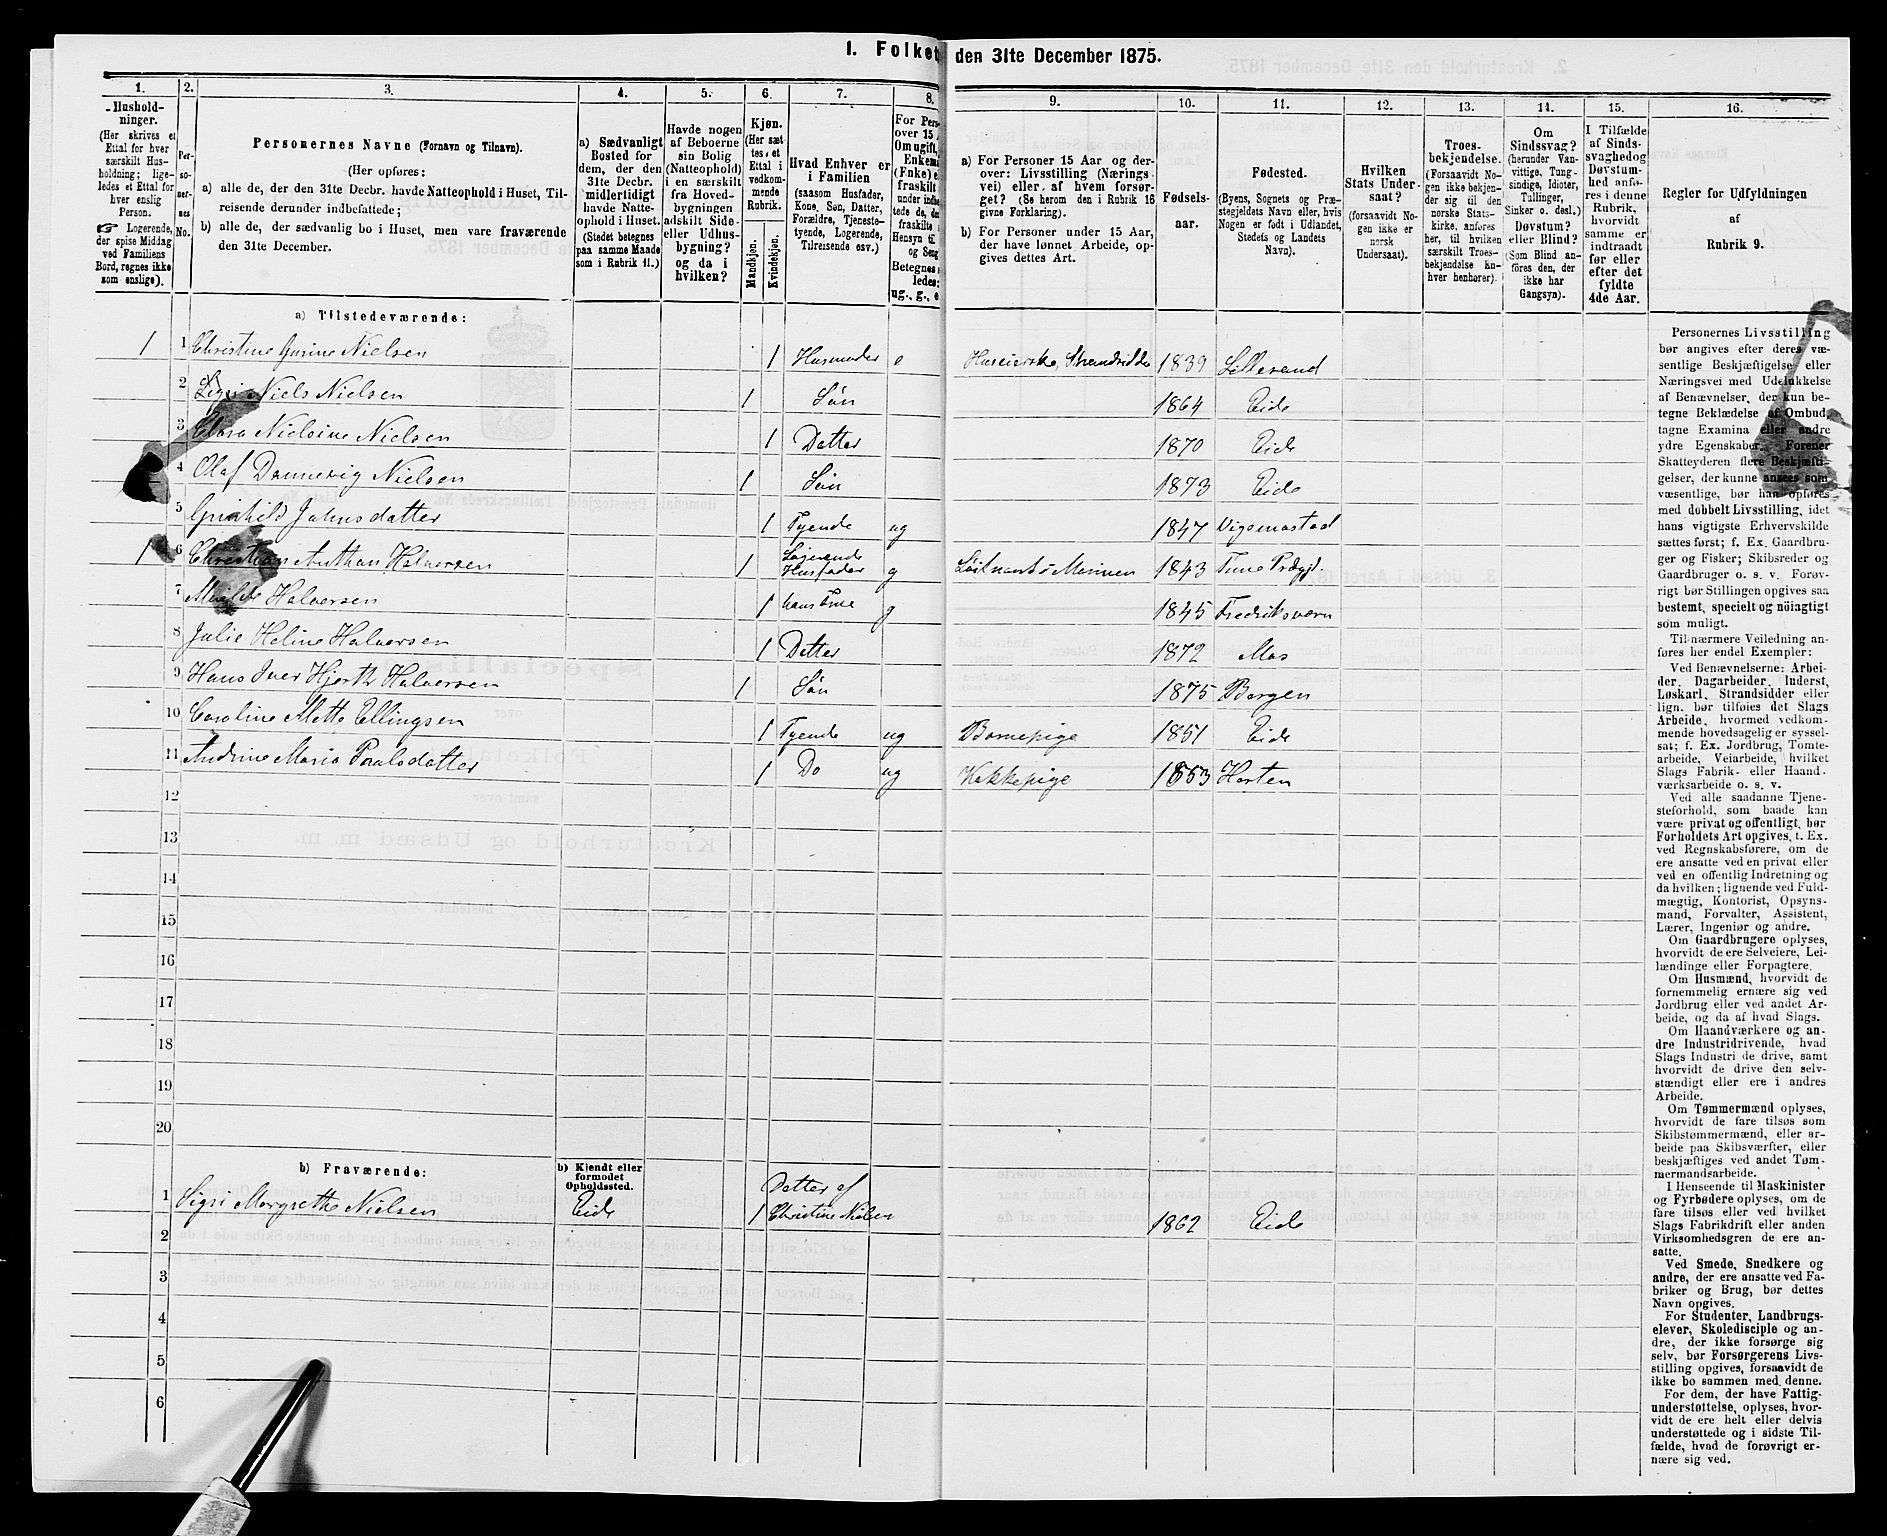 I. Folket den 31te December 1875.
1. 2. 3. 4. 5. 6. 7. 8. 9. 10. 11. 12. 13. 14. 15. 16.
Hushold-
ninger.
(Her skrives et
Ettal for hver
særskilt Hus-
holdning; lige-
ledes et Ettal for
hver enslig
Person.
Logerende,
der spise Middag
ved Familiens
Bord, regnes ikke
som enslige).
Per-
so-
ner-
nes
No.
Personernes Navne (Fornavn og Tilnavn).
(Her opføres:
a) alle de, der den 31te Decbr. havde Natteophold i Huset, Til-
reisende derunder indbefattede;
b) alle de, der sædvanlig bo i Huset, men vare fraværende
den 31te December.
a) Sædvanligt
Bosted for
dem, der den
31te Decbr.
midlertidigt
havde Natte-
ophold i Huset.
(Stedet betegnes
paa samme Maade
som i Rubrik 11.)
Havde nogen
af Beboerne
sin Bolig
(Natteophold)
i en særskilt
fra Hoved-
bygningen
adskilt Side-
eller Udhus-
bygning?
og da i
hvilken?
Kjøn.
(Her sæt-
tes et
Ettal i
vedkom-
mende
Rubrik.
Mandkjøn.
Kvindekjøn.
Hvad Enhver er
i Familien
(saasom Husfader,
Kone, Søn, Datter,
Forældre, Tjeneste-
tyende, Logerende,
Tilreisende osv.)
For Pers
over 15 A
Om ugift,
Enkem
(Fnke) e
fraskilt
under indb
tede de, de
fraskilte
Hensyn til
og Seng
Betegnes
ledes:
ug., g., e
a) For Personer 15 Aar og der-
over: Livsstilling (Nærings-
vei) eller af hvem forsør-
get? (Se herom den i Rubrik 16
givne Forklaring).
b) For Personer under 15 Aar,
der have lønnet Arbeide, op-
gives dettes Art.
Fødsels-
aar.
Fødested.
(Byens, Sognets og Præ-
stegjeldets Navn eller, hvis
Nogen er født i Udlandet,
Stedets og Landets
Navn).
Hvilken
Stats Under-
saat?
(forsaavidt No-
gen ikke er
norsk
Undersaat).
Troes-
bekjendelse.
(Forsaavidt No-
gen ikke bekjen-
der sig til den
norske Stats-
kirke, anføres
her, til hvilken
særskilt Troes-
bekjendelse En-
hver henhører).
Om
Sindssvag?
(herunder Van-
vittige, Tung-
sindige, Idioter,
Tallinger,
Sinker o. desl.)
Døvstum?
eller Blind?
(Som Blind an-
føres den, der
ikke har
Gangsyn).
I Tilfælde
af Sinds-
svaghed og
Døvstum-
hed anfø-
res i denne
Rubrik,
hvorvidt
samme er
indtraadt
før eller
efter det
fyldte
4de Aar.
Regler for Udfyldningen
af
Rubrik 9.
a) Tilstedeværende:
1 1 Christine Gurine Nielsen 1 Husmoder e Huseierske, Strandsidde 1839 Lillesand
2 Niels Nielsen 1 Søn 1864 Eide
3 Clara Nielsine Nielsen 1 Datter 1870 Eide
4 Olaf Dannevig Nielsen 1 Søn 1873 Eide
5 Gunhild Jahnsdatter 1 Tyende ug 1847 Vigemostad
1 6 Christian Anthon Halvorsen 1 Logerende Husfader g Løitnant i Marinen 1843 Tune Prægj.
7 Halvorsen 1 hans Kone g 1845 Fredriksværn
8 Julie Heline Halvorsen 1 Datter 1872 Mos
9 Hans Iver Hjorth Halvorsen 1 Søn 1875 Bergen
10 Caroline Mette Ellingsen 1 Tyende ug Barnepige 1851 Eide
11 Andrine Maria Paulsdatter 1 Do ug Kokkepige 1853 Horten
12
13
14
15
16
17
18
19
20
b) Fraværende:
b) Kjendt eller
formodet
Opholdssted.
1 Sigri Margrethe Nielsen Eide 1 Datter af Christine Nielsen 1862 Eide
2
3
4
5
6
Personernes Livsstilling
bør angives efter deres væ-
sentlige Beskjæftigelse eller
Næringsvei med Udelukkelse
af Benævnelser, der kun be-
tegne Beklædelse af Ombud,
tagne Examina eller andre
ydre Egenskaber. Forener
Skatteyderen flere Beskjæfti-
gelser, der kunne ansees som
væsentlige, bør han opføres
med dobbelt Livsstilling, idet
hans vigtigste Erhvervskilde
sættes først; f. Ex. Gaardbru-
ger og Fisker; Skibsreder og
Gaardbruger o. s. v. Forøv-
rigt bør Stillingen opgives saa
bestemt, specielt og nöiagtigt
som muligt.
Til nærmere Veiledning an-
føres her endel Exempler:
Ved Benævnelserne: Arbei-
der, Dagarbeider, Inderst,
Løskarl, Strandsidder eller
lign. bør tilføies det Slags
Arbeide, hvormed vedkom-
mende hovedsagelig er syssel-
sat; f. Ex. Jordbrug, Tomte-
arbeide, Veiarbeide, hvilket
Slags Fabrik- eller Haand-
værksarbeide o. s. v.
Ved alle saadanne Tjene-
steforhold, som baade kan
være privat og offentligt, bør
Forholdets Art opgives, t. Ex.
ved Regnskabsførere, om de
ere ansatte ved en privat eller
ved en offentlig Indretning og
da hvilken; lignende ved Fuld-
mægtig, Kontorist, Opsyns-
mand, Forvalter, Assistent,
Lærer, Ingeniør og andre.
Om Gaardbrugere oplyses,
hvorvidt de ere Selveiere, Lei-
lændinge eller Forpagtere.
Om Husmænd, hvorvidt de
fornemmelig ernære sig ved
Jordbrug eller ved andet Ar-
beide, og da af hvad Slags.
Om Haandværkere og an-
dre Industridrivende, hvad
Slags Industri de drive, samt
hvorvidt de drive den selv-
stændigt eller ere i andres
Arbeide.
Om Tømmermænd oplyses,
hvorvidt de fare tilsøs som
Skibstømmermænd, eller ar-
beide paa Skibsværfter, eller
beskjæftiges ved andet Tøm-
mermandsarbeide.
I Henseende til Maskinister
og Fyrbødere oplyses, om de
fare tilsøs eller ved hvilket
Slags Fabrikdrift eller anden
Virksomhedsgren de ere an-
satte.
Ved Smede, Snedkere og
andre, der ere ansatte ved Fa-
briker og Brug, bør dettes
Navn opgives.
For Studenter, Landbrugs-
elever, Skoledisciple og an-
dre, der ikke forsørge sig
selv, bør Forsørgerens Livs-
stilling opgives, forsaavidt de
ikke bo sammen med denne.
For dem, der have Fattig-
understøttelse, oplyses, hvor-
vidt de ere helt eller delvis
understøttede og i sidste Til-
fælde, hvad de forøvrigt er-
nære sig ved.